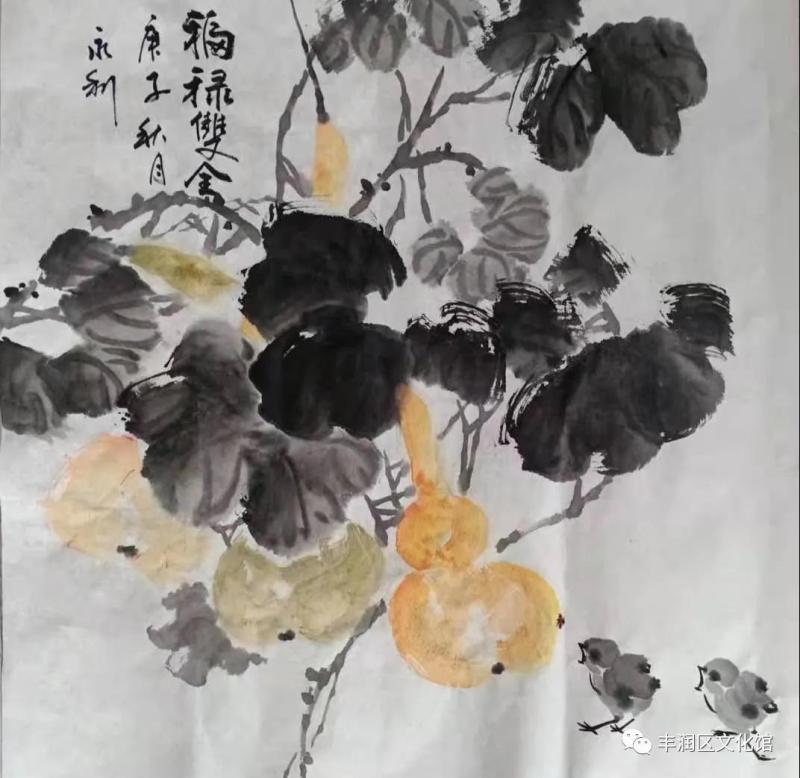 福禄雙全
庚子秋月
永利
丰润区文化馆